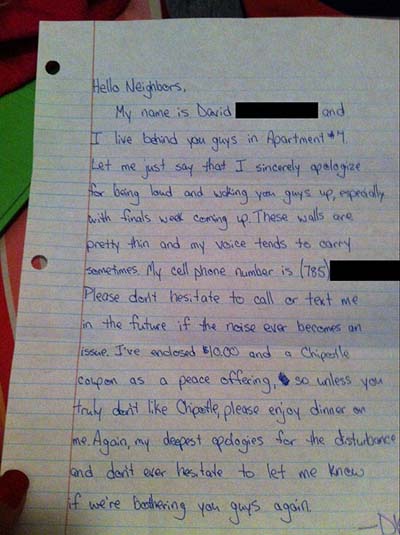 Hello Neighbors,
My name is David and
I live behind you guys in Apartment #4.
Let me just say that I sincerely apologize
for being loud and waking you guys up, especially
with finals week coming up. These walls are
pretty thin and my voice tends to carry
sometimes. My cell phone number is (785)
Please don't hesitate to call or text me
in the future if the noise ever becomes an
issue. I've enclosed $10.00 and a Chipotle
coupon as a peace offering, so unless you
truly don't like Chipotle, please enjoy dinner on
me. Again, my deepest apologies for the disturbance
and don't ever hesitate to let me know
if we're boothering you guys again.